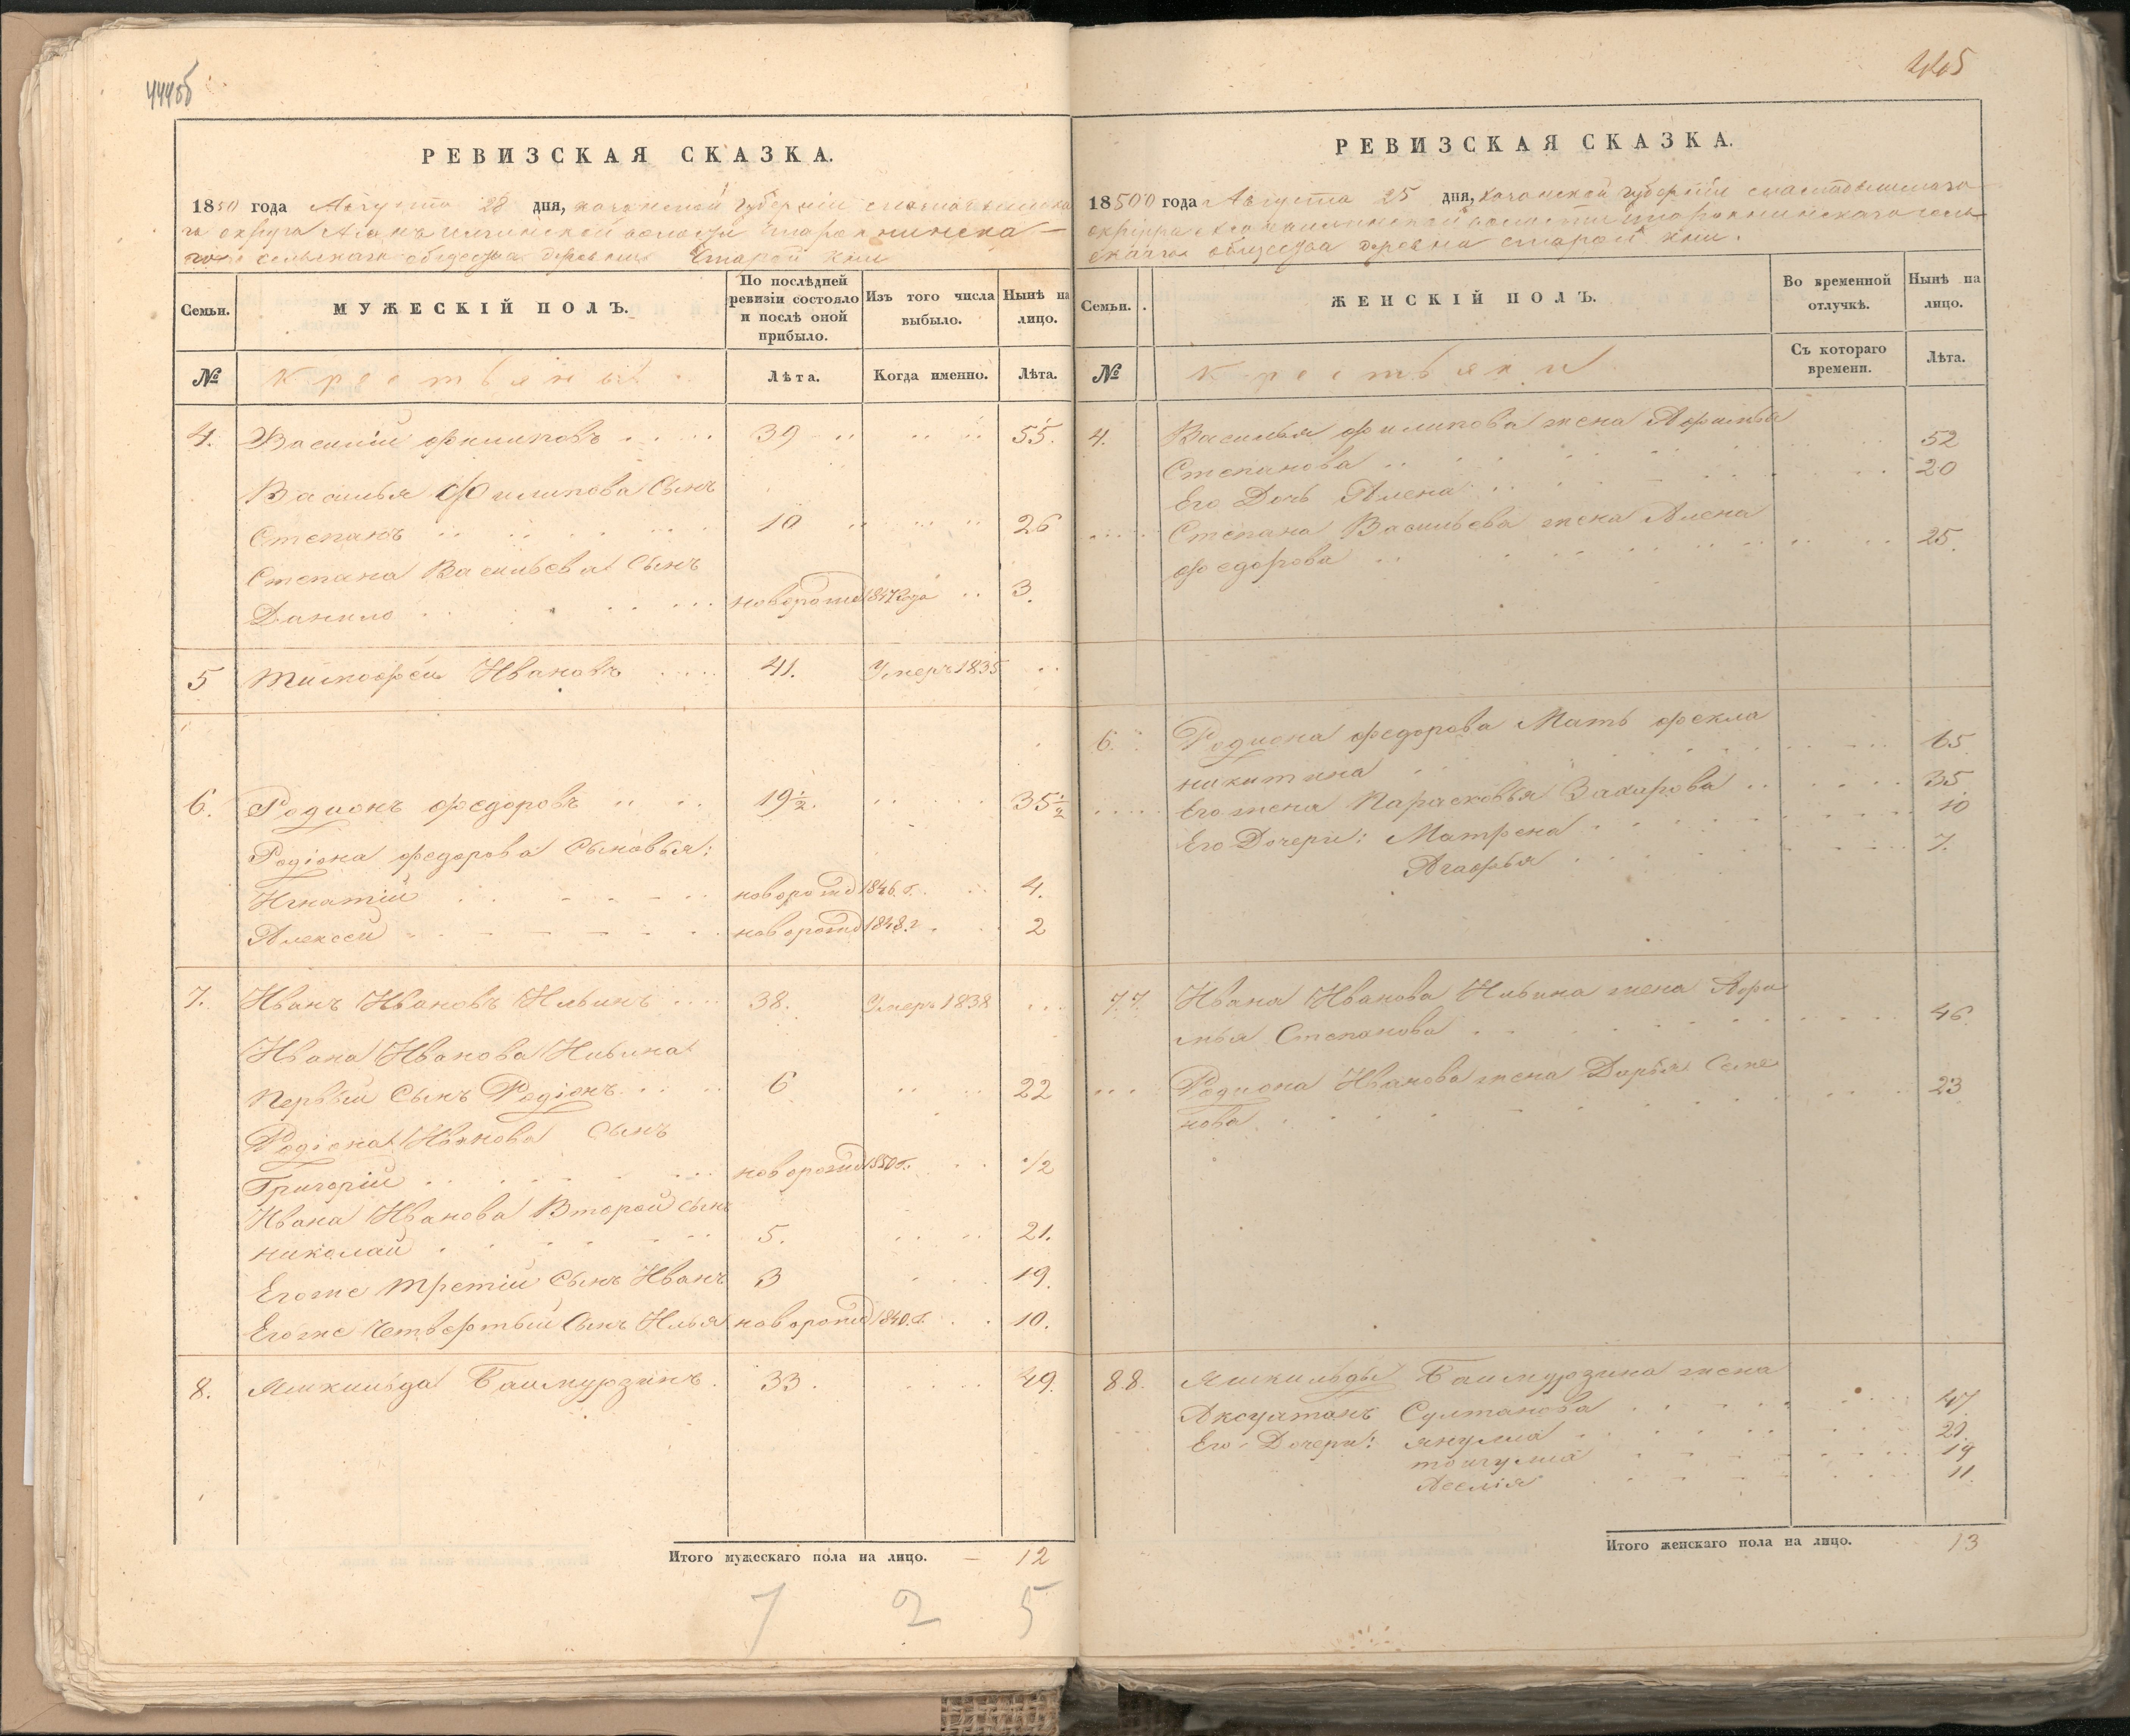 444об
РЕВИЗСКАЯ СКАЗКА.
1850 года Августа 28 дня, казанской губерніи
го округа волости
сельскаго общества деревни Старой
Семьи.
МУЖЕСКІЙ ПОЛЪ.
По послѣдней ревизіи состояло и послѣ оной прибыло.
Изъ того числа выбыло.
Нынѣ на лицо.
№
Крестьяны
Лѣта.
Когда именно.
Лѣта.
4. Василій Филиповъ 39 55.
Василья Филипова Сынъ
Степанъ 10 26
Степана Васильева Сынъ
Данило новорожд 1847 года 3.
5 Тимофей Ивановъ 41. Умеръ 1835
6. Родионъ Федоровъ 19½. 35½
Родіона Федорова Сыновья:
Игнатій новорожд 1846 г. 4.
Алексей новорожд 1848 г 2
7. Иванъ Ивановъ Ильинъ 38. Умеръ 1838
Ивана Иванова Ильина
Первый Сынъ Родіонъ 6 22
Родіона Иванова Сынъ
Григорій новорожд 1850 г. 1/2
Ивана Иванова Второй Сынъ
Николай 5. 21.
Егоже Третій Сынъ Иванъ 3 19.
Егоже Четвертый Сынъ Илья новорожд 1840 г. 10.
8. Яшкильда Баимурзинъ. 33. 49.
Итого мужескаго пола на лицо. — 12
7 2 5
445
РЕВИЗСКАЯ СКАЗКА.
1850 года Августа 25 дня, казанской губерніи
округа волости
скаго общества деревни старой
Семьи.
ЖЕНСКІЙ ПОЛЪ.
Во временной отлучкѣ.
Нынѣ на лицо.
№
Крестьяни
Съ котораго времени.
Лѣта.
4. Василья Филипова жена Афимья
Степанова 52
Его Дочь Алена 20
Степана Васильева жена Алена
Федорова 25.
6. Родиона Федорова Мать Фекла
Никитина 65
Его жена Парасковья Захарова 35
Его Дочери: Матрена 10
Агафья 7.
7.7. Ивана Иванова Ильина жена Афи
мья Степанова 46.
Родиона Иванова жена Дарья Семе
нова 23
8.8. Яшкильды Баимурзина жена
Султанова 47
Его Дочери: 21.
19
11.
Итого женскаго пола на лицо. 13